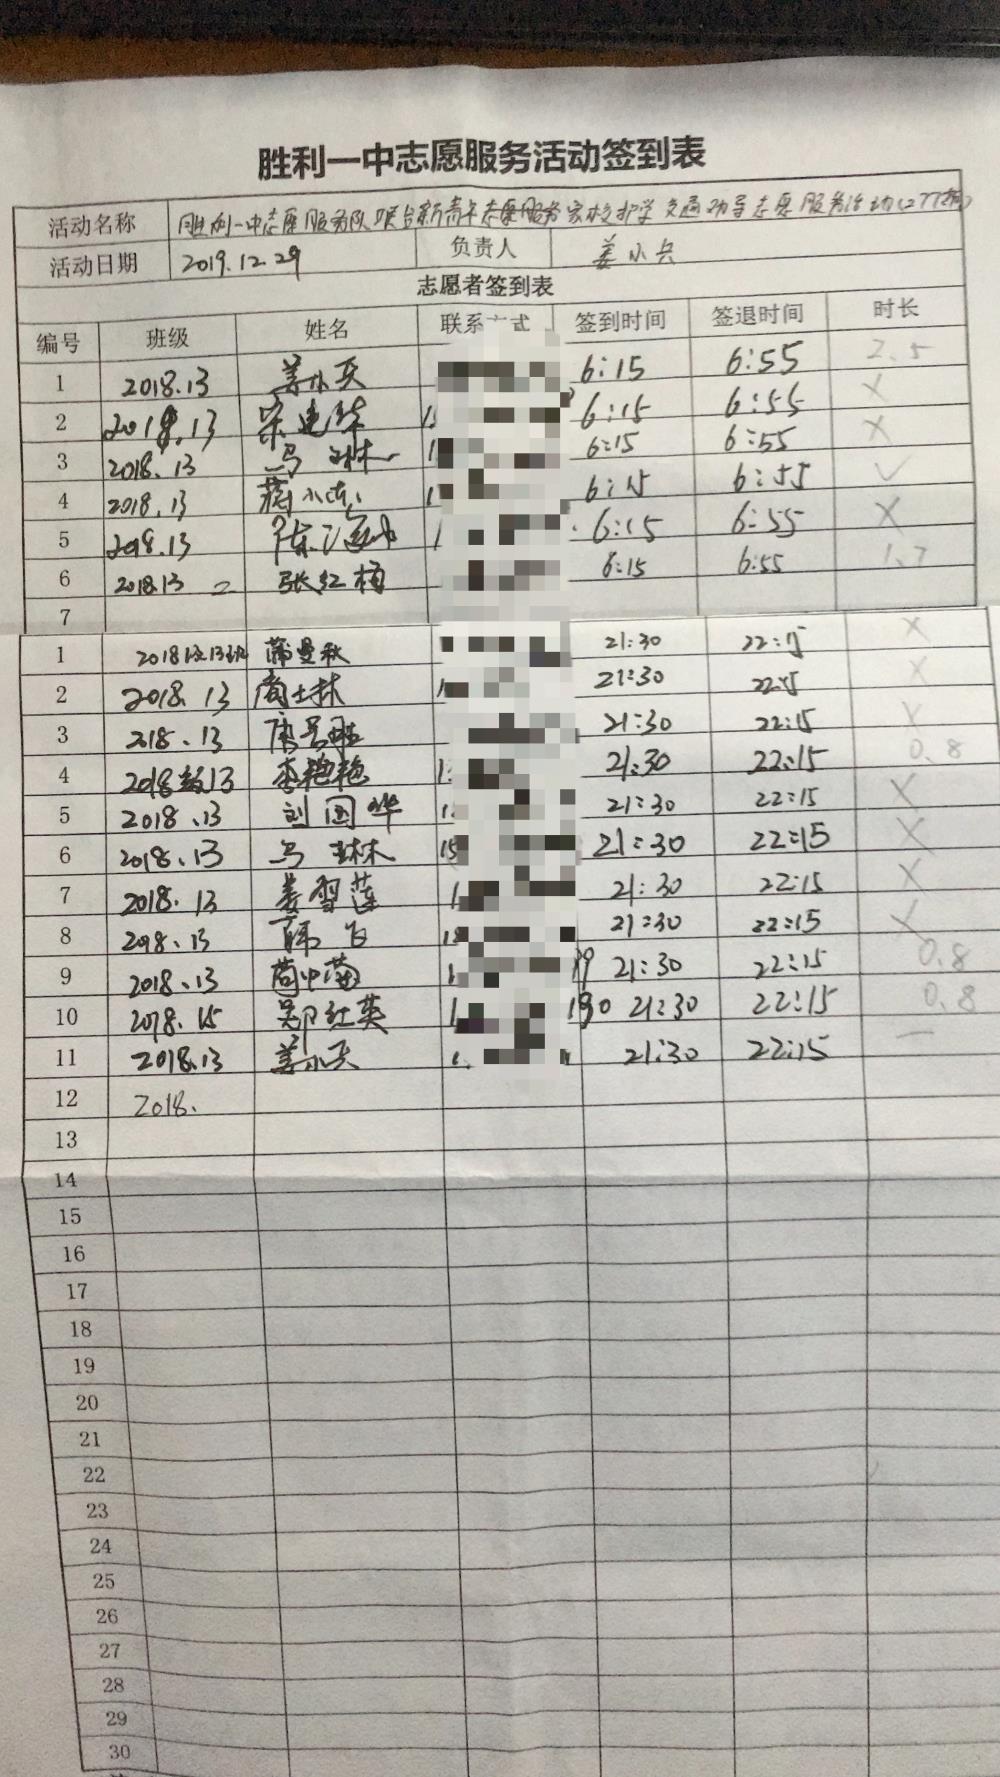 胜利一中志愿服务活动签到表
活动名称 胜利一中志愿服务队 新青年志愿服务 家校护学 交通劝导志愿服务活动(277期)
活动日期 2019.12.29 负责人 姜小兵
志愿者签到表
编号 班级 姓名 联系方式 签到时间 签退时间 时长
1 2018.13 姜小兵 6:15 6:55 2.5
2 2018.13 宋建华 6:15 6:55 ×
3 2018.13 马琳 6:15 6:55 ×
4 2018.13 蒋小 6:15 6:55 ✓
5 2018.13 陈 6:15 6:55 ×
6 2018.13 二 张红梅 6:15 6:55 1.7
7
1 2018级13班 蒲曼秋 21:30 22:15 ×
2 2018.13 商士林 1 21:30 22:15 ×
3 2018.13 唐 21:30 22:15 ×
4 2018级13 李艳艳 1 21:30 22:15 0.8
5 2018.13 刘国华 1 21:30 22:15 ×
6 2018.13 马琳 15 21:30 22:15 ×
7 2018.13 姜雪莲 1 21:30 22:15 ×
8 2018.13 韩飞 21:30 22:15 ×
9 2018.13 苘中菊 99 21:30 22:15 0.8
10 2018.15 郭红英 1 190 21:30 22:15 0.8
11 2018.13 姜小兵 21:30 22:15 —
12 2018.
13
14
15
16
17
18
19
20
21
22
23
24
25
26
27
28
29
30